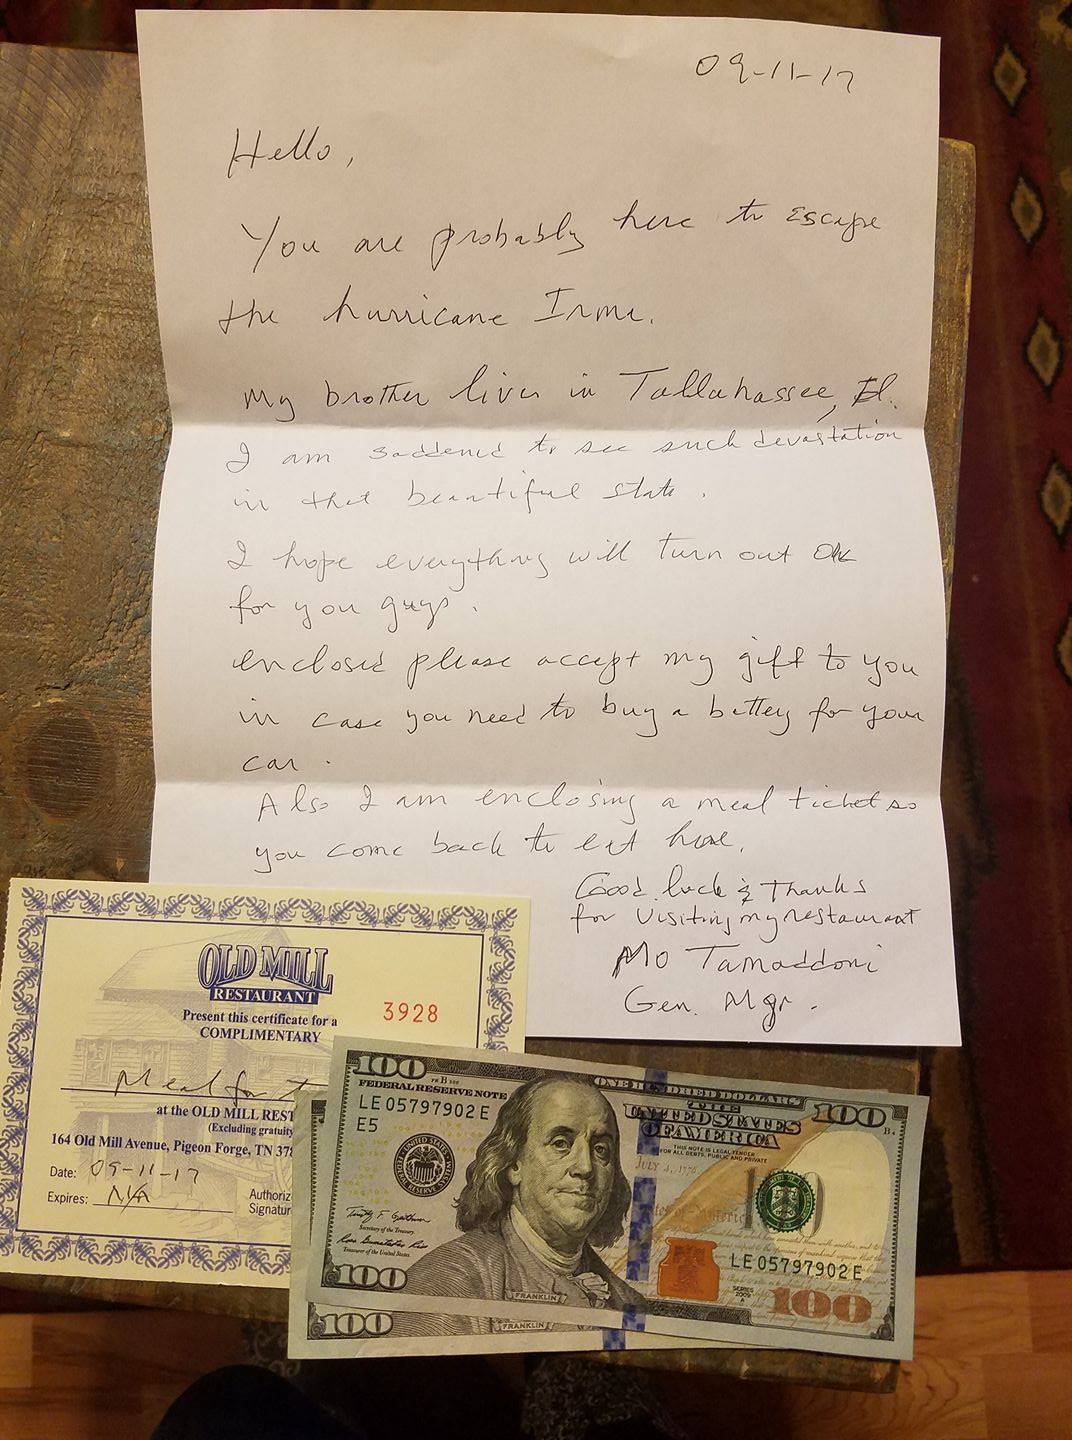 09-11-17
Hello,
You are probably here to escape
the hurricane Irma.
My brother lives in Tallahassee, Fl.
I am saddened to see such devastation
in that beautiful state.
I hope everything will turn out OK
for you guys.
enclosed please accept my gift to you
in case you need to buy a battery for your
car.
Also I am enclosing a meal ticket so
you come back to eat here.
Good luck & Thanks
for visiting my restaurant
Mo Tamaddoni
Gen. Mgr.
OLD MILL
RESTAURANT
3928
Present this certificate for a
COMPLIMENTARY
Meal for
at the OLD MILL REST
(Excluding gratuity
164 Old Mill Avenue, Pigeon Forge, TN 37
Date: 09-11-17
Expires: N/A
Authoriz
Signatur
100
FEDERAL RESERVE NOTE
LE 05797902 E
E5
ONE HUNDRED DOLLARS
THE
UNITED STATES
OF AMERICA
THIS NOTE IS LEGAL TENDER
FOR ALL DEBTS, PUBLIC AND PRIVATE
100
JULY 4, 1776
Secretary of the Treasury.
Treasurer of the United States.
LE 05797902 E
SERIES
2009
A
100
FRANKLIN
100
100
FRANKLIN